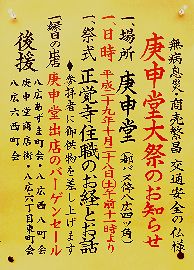 無病息災・商売繁昌 交通安全の仏様
庚申堂大祭のお知らせ
一、場所 庚申堂
一、日時 平成二十九年十月二十八日(土)午前十一時より
一、祭式 正覚寺住職のお経とお話
◆参拝者に御供物を差し上げます
庚申堂出店のバーゲンセール
後援
八広あずま町会・八広西八町会
庚申堂商店街・八広六丁目東町会
八広六西町会